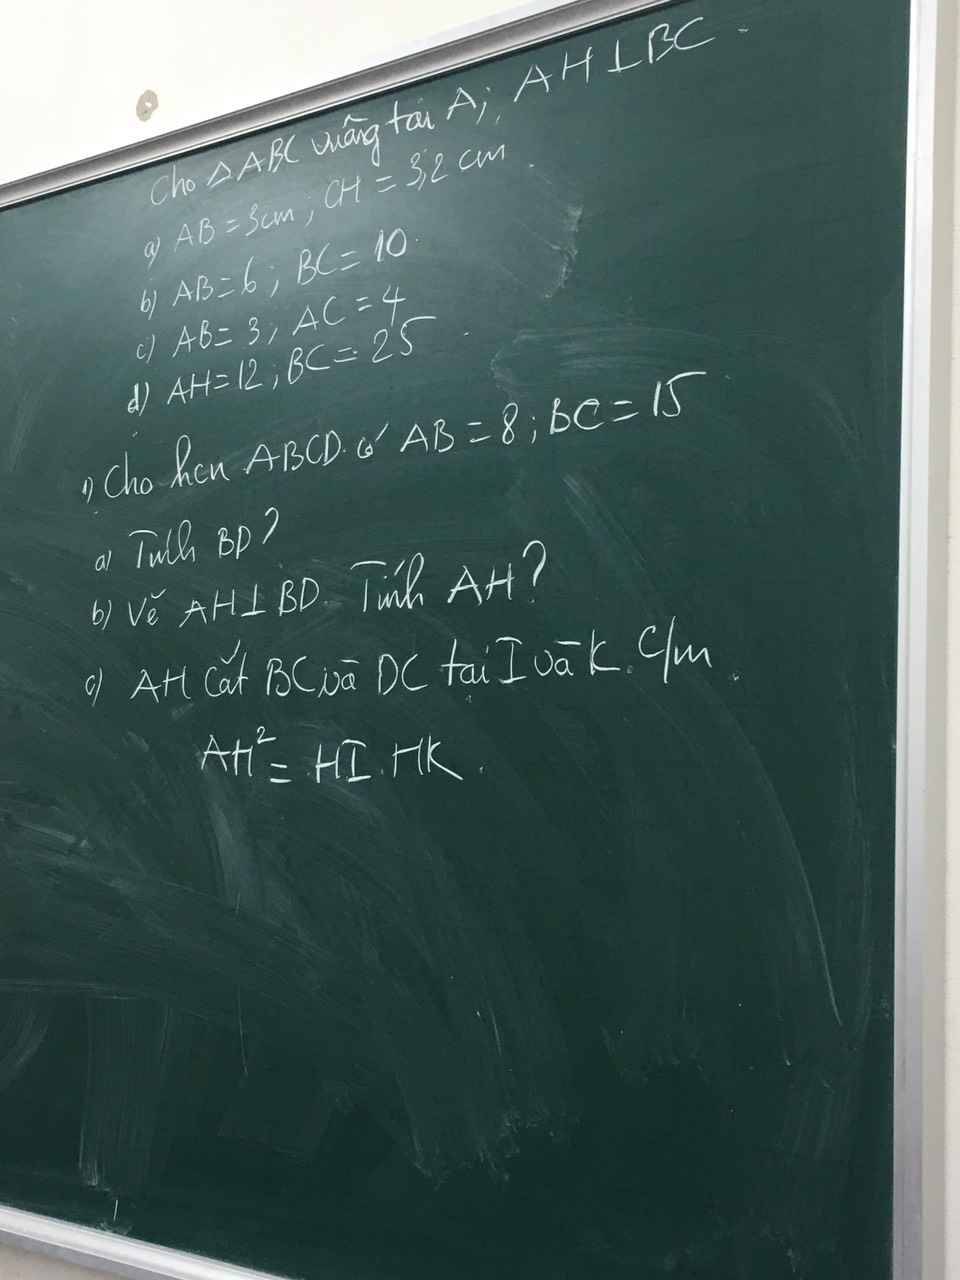 Cho △ABC vuông tại A; AH⊥BC.
a) AB = 3cm; CH = 3,2 cm.
b) AB = 6; BC = 10.
c) AB = 3; AC = 4
d) AH = 12; BC = 25
1) Cho hcn ABCD có AB = 8; BC = 15
a) Tính BD?
b) Vẽ AH⊥BD. Tính AH?
c) AH cắt BC và DC tại I và K. C/m
AH² = HI.HK.